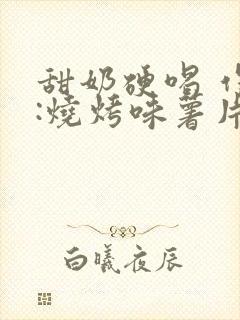 甜奶硬唱
:燒烤味薯片
白曦夜辰